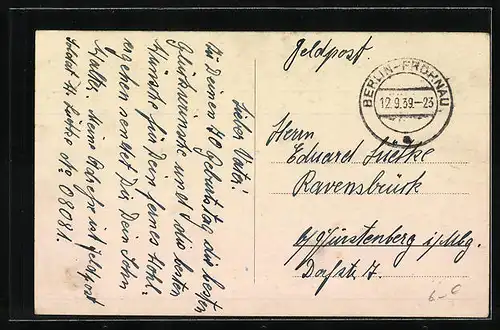 Lieber Vater!
Zu Deinem 70 Geburtstag die besten
Glückwünsche und die besten
Wünsche für Dein fernes Wohl-
ergehen sendet Dir Dein Sohn
Walter. Meine Adresse ist Feldpost
Soldat W. Lüttke No 08081.
Feldpost.
BERLIN-FROHNAU
12.9.39.-23
a
Herrn
Eduard Luetke
Ravensbrück
b/Fürstenberg i/Mbg.
Dorfstr. 7.